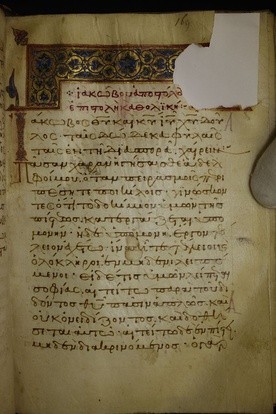 16
ἰακώβου ἀποστόλου
ἐπιστολὴ καθολικὴ
Ἰάκωβος θυ καὶ κυ ιυ χυ δού
λος, ταῖς δώδεκα φυλαῖς
ταῖς ἐν τῆ διασπορᾶ, χαίρειν
πᾶσαν χαρὰν ἡγήσασθε ἀδελ
φοί μου, ὅταν πειρασμοῖς πε
ριπέσητε ποικίλοις· γινώσκον
τες ὅτι τὸ δοκίμιον ὑμῶν τῆς
πίστεως κατεργάζεται ὑπο
μονήν· ἡ δὲ ὑπομονὴ ἔργον τέ
λειον ἐχέτω, ἵνα ἦτε τέλειοι
ὁλόκληροι ἐν μηδενὶ λειπό
μενοι· εἰ δέ τις ὑμῶν λείπεται
σοφίας, αἰτείτω παρὰ τοῦ δι
δόντος θυ πᾶσιν ἁπλῶς, καὶ
οὐκ ὀνειδίζοντος, καὶ δοθή
σεται αὐτῶ· αἰτείτω δὲ ἐν πίστει
μηδὲν διακρινόμενος· ὁ γὰρ